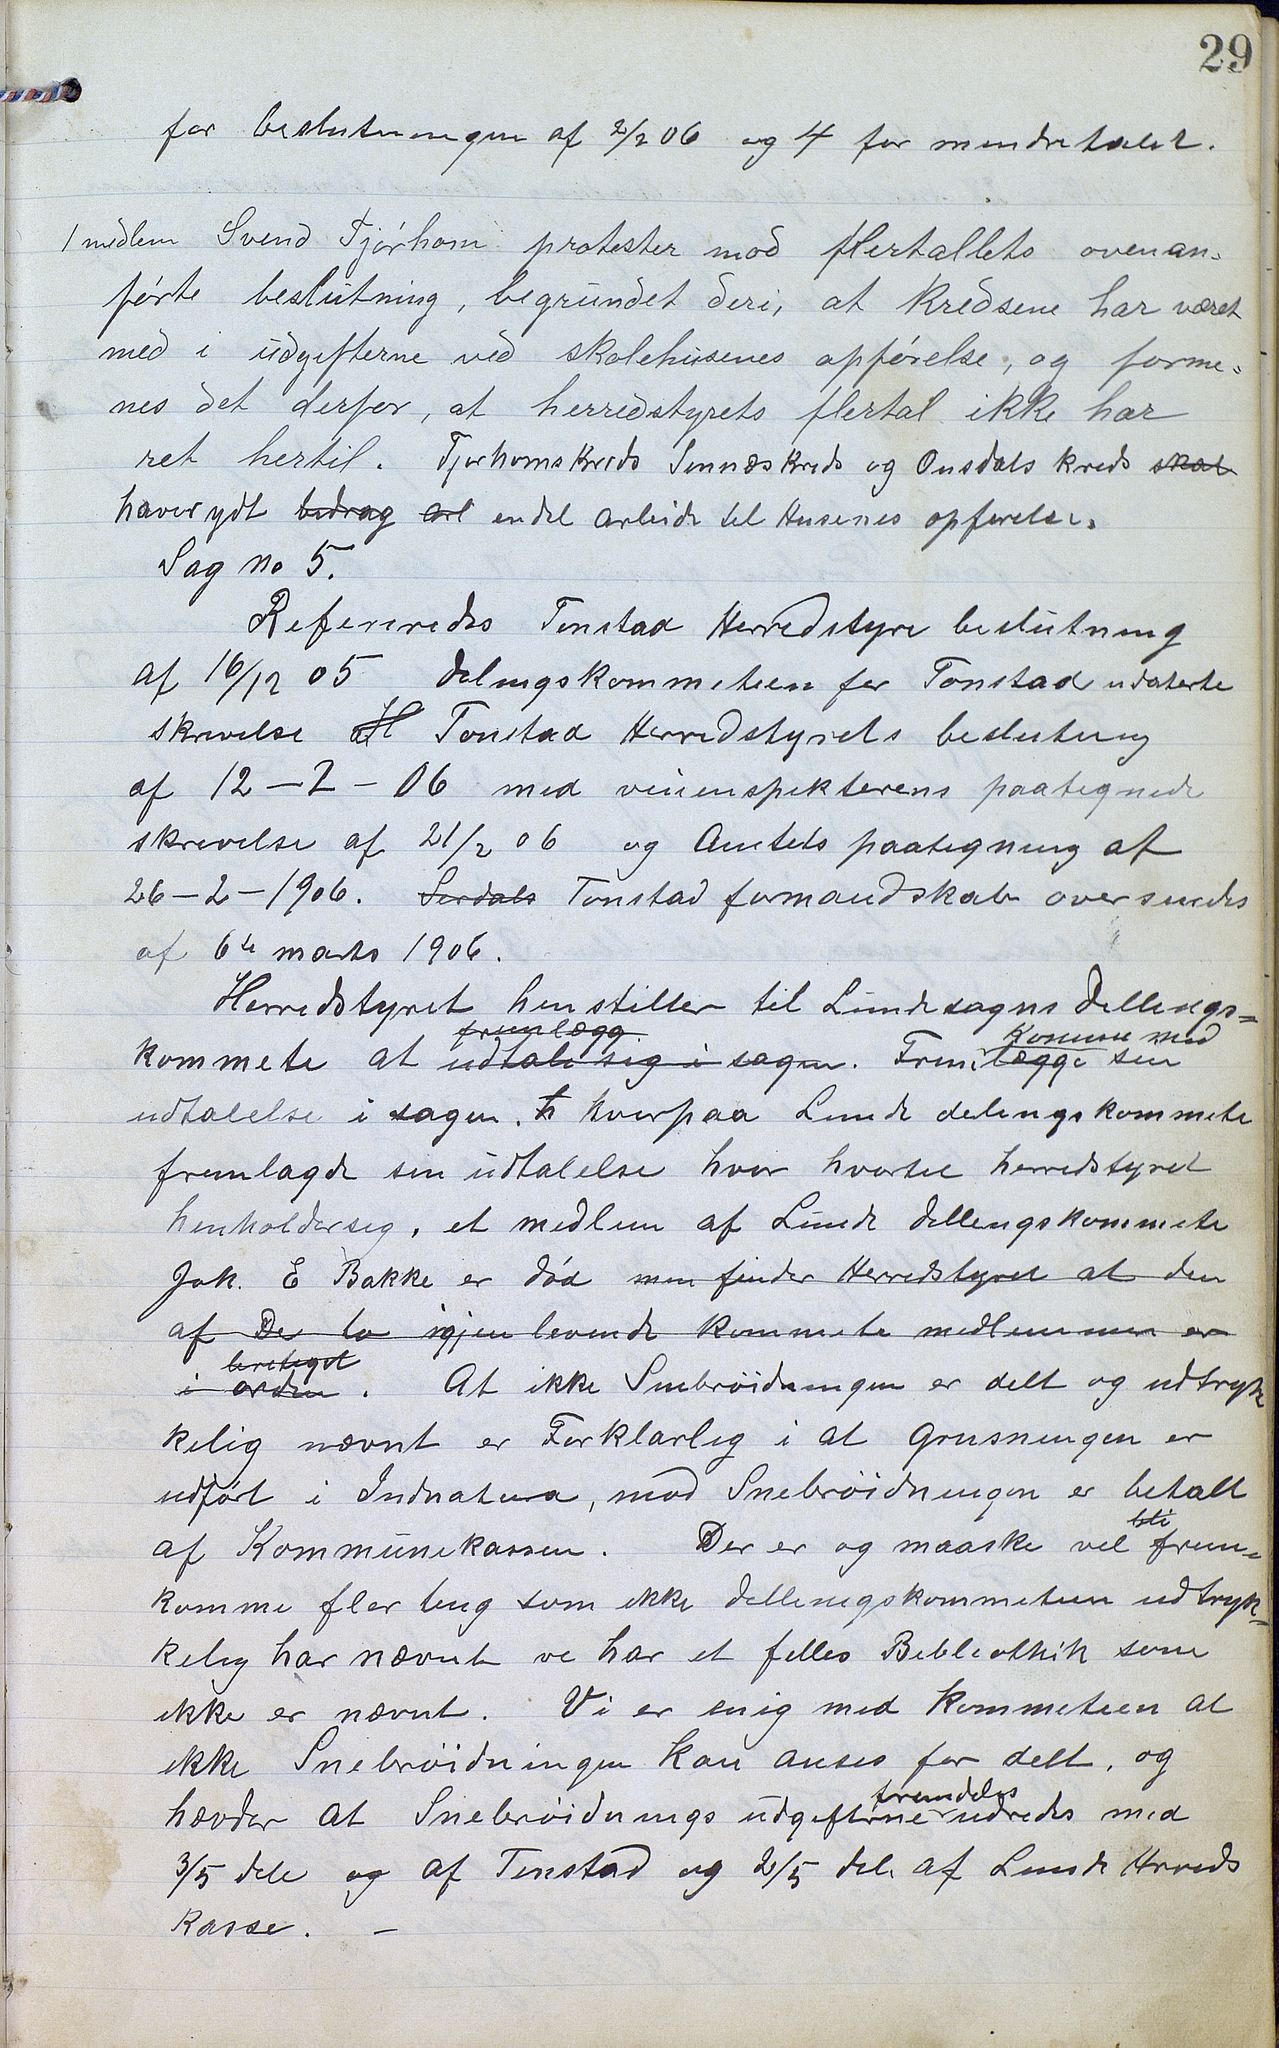 29
for beslutningen af 2/2 06 og 4 for mindretalet.
1 medlem Svend Tjórhom protester mod flertallets ovenan-
førte beslutning, begrundet deri, at kredsene har været
med i udgifterne ved skolehusenes opførelse, og forme-
nes det derfor, at herredstyrets flertal ikke har
ret hertil. Tjorhomskreds Sinnæskreds og Ousdals kreds skal
haver ydt bidrag art endel arbeide til Husenes opførelse.
Sag no 5.
Refereredes Tonstad Herredstyre beslutning
af 16/12 05 Delingskommeteen for Tonstad udaterte
skrivelse Tonstad Herredstyrets beslutning
af 12-2-06 med veiinspektørens paategnede
skrivelse af 21/2 06 og Amtets paategning af
26-2-1906. Sirdals Tonstad formandskab oversendes
af 6te marts 1906.
Herredstyret henstiller til Lundesogns Dellings-
fremlægg komme med
kommete at udtale sig i sagen. Fremlægge sin
udtalelse i sagen. h hvorpaa Lunde delingskommete
fremlagde sin udtalelse hvor hvortil herredstyret
henholdersig. et medlem af Lunde dellingskommete
Joh. E Bakke er død men finder Herredstyret at den
af De to igjen levende kommete medlemmer er
beretiget
i orden. At ikke Snebrøidningen er delt og udtryk
kelig nævnt er Forklarlig i at Grusningen er
udført i Indnatura, mod Snebrøidningen er betalt
bli
af Kommunekassen. Der er og maaske vel frem-
komme fler ting som ikke dellingskommeteen udtryk-
kelig har nævnt vi har et felles Bibliothik som
ikke er nævnt. Vi er enig med kommeteen at
ikke Snebrøidningen kan anses for delt, og
fremdeles
hævder at Snebrøidnings udgifterne udredes med
3/5 dele og af Tonstad og 2/5 del. af Lunde Herreds
kasse. -